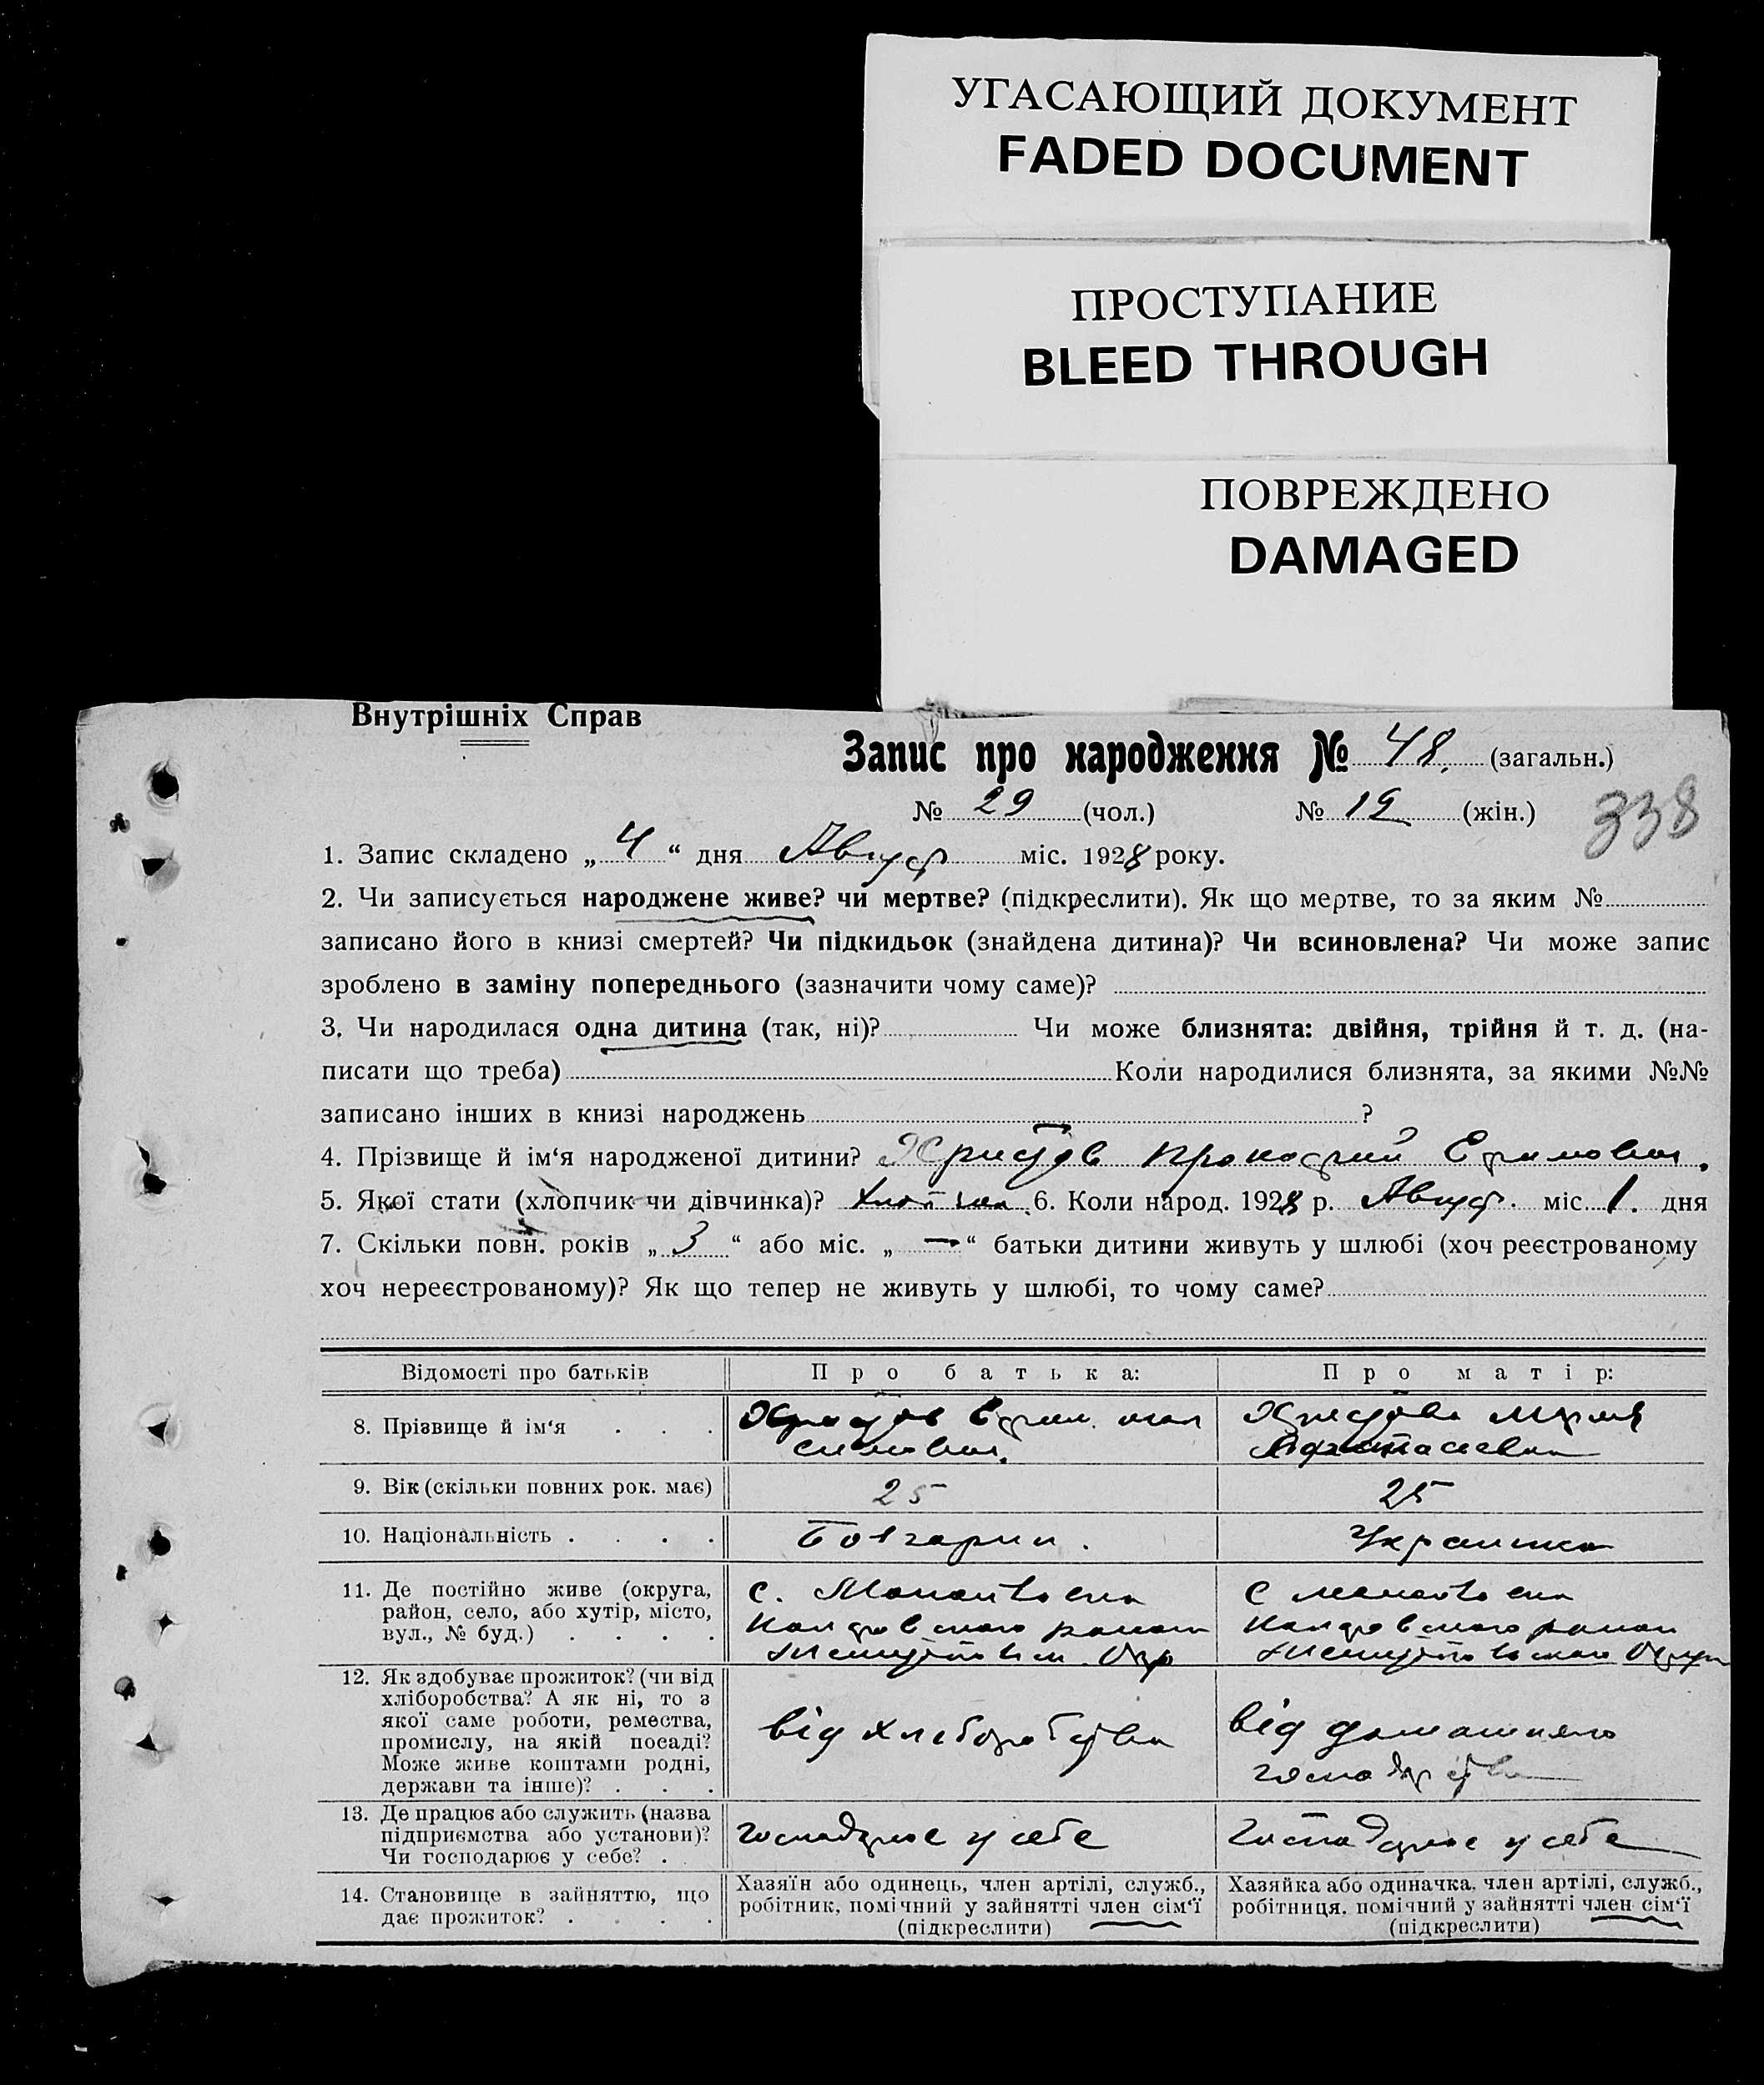 УГАСАЮЩИЙ ДОКУМЕНТ
FADED DOCUMENT
ПРОСТУПАНИЕ
BLEED THROUGH
ПОВРЕЖДЕНО
DAMAGED
Внутрішніх Справ
Запис про народження № 48. (загальн.)
№ 29 (чол.) № 19 (жін.)
338
1. Запис складено „ 4 “ дня Август міс. 1928 року.
2. Чи записується народжене живе? чи мертве? (підкреслити). Як що мертве, то за яким №
записано його в книзі смертей? Чи підкидьок (знайдена дитина)? Чи всиновлена? Чи може запис
зроблено в заміну попереднього (зазначити чому саме)?
3. Чи народилася одна дитина (так, ні)? Чи може близнята: двійня, трійня й т. д. (на-
писати що треба) Коли народилися близнята, за якими №№
записано інших в книзі народжень ?
4. Прізвище й ім‘я народженої дитини? Христов
5. Якої стати (хлопчик чи дівчинка)? хлопчик 6. Коли народ. 1928 р. Август. міс. 1. дня
7. Скільки повн. років „ 3 “ або міс. „ — “ батьки дитини живуть у шлюбі (хоч реєстрованому
хоч нереєстрованому)? Як що тепер не живуть у шлюбі, то чому саме?
Відомості про батьків Про батька: Про матір:
8. Прізвище й ім‘я . . . Христов Христова Мария
9. Вік (скільки повних рок. має) 25 25
10. Національність . . . . Болгарин. Украинка
11. Де постійно живе (округа, с. с
район, село, або хутір, місто, района района
вул., № буд.) . . . .
12. Як здобуває прожиток? (чи від
хліборобства? А як ні, то з
якої саме роботи, ремества, від хліборобства від домашняго
промислу, на якій посаді? господарства
Може живе коштами родні,
держави та інше)? . . .
13. Де працює або служить (назва
підприємства або установи)? господарює у себе господарює у себе
Чи господарює у себе? .
14. Становище в зайняттю, що
дає прожиток? . . . .
Хазяїн або одинець, член артілі, служб.,
робітник, помічний у зайнятті член сім‘ї
(підкреслити)
Хазяйка або одиначка, член артілі, служб.,
робітниця, помічний у зайнятті член сім‘ї
(підкреслити)